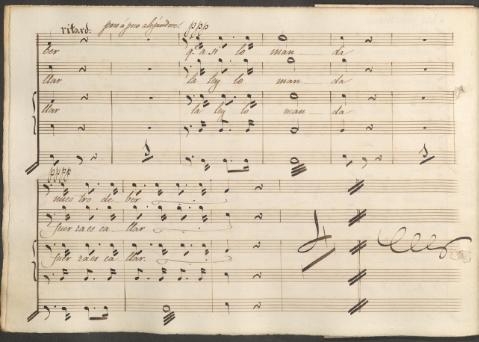 ritard: poco á poco alejandose. ppp
ber q.e asi lo man da
llar la ley lo man da
llar la ley lo man da
pppp
nues tro de ber
fuer za es ca llar
fuer za es ca llar.